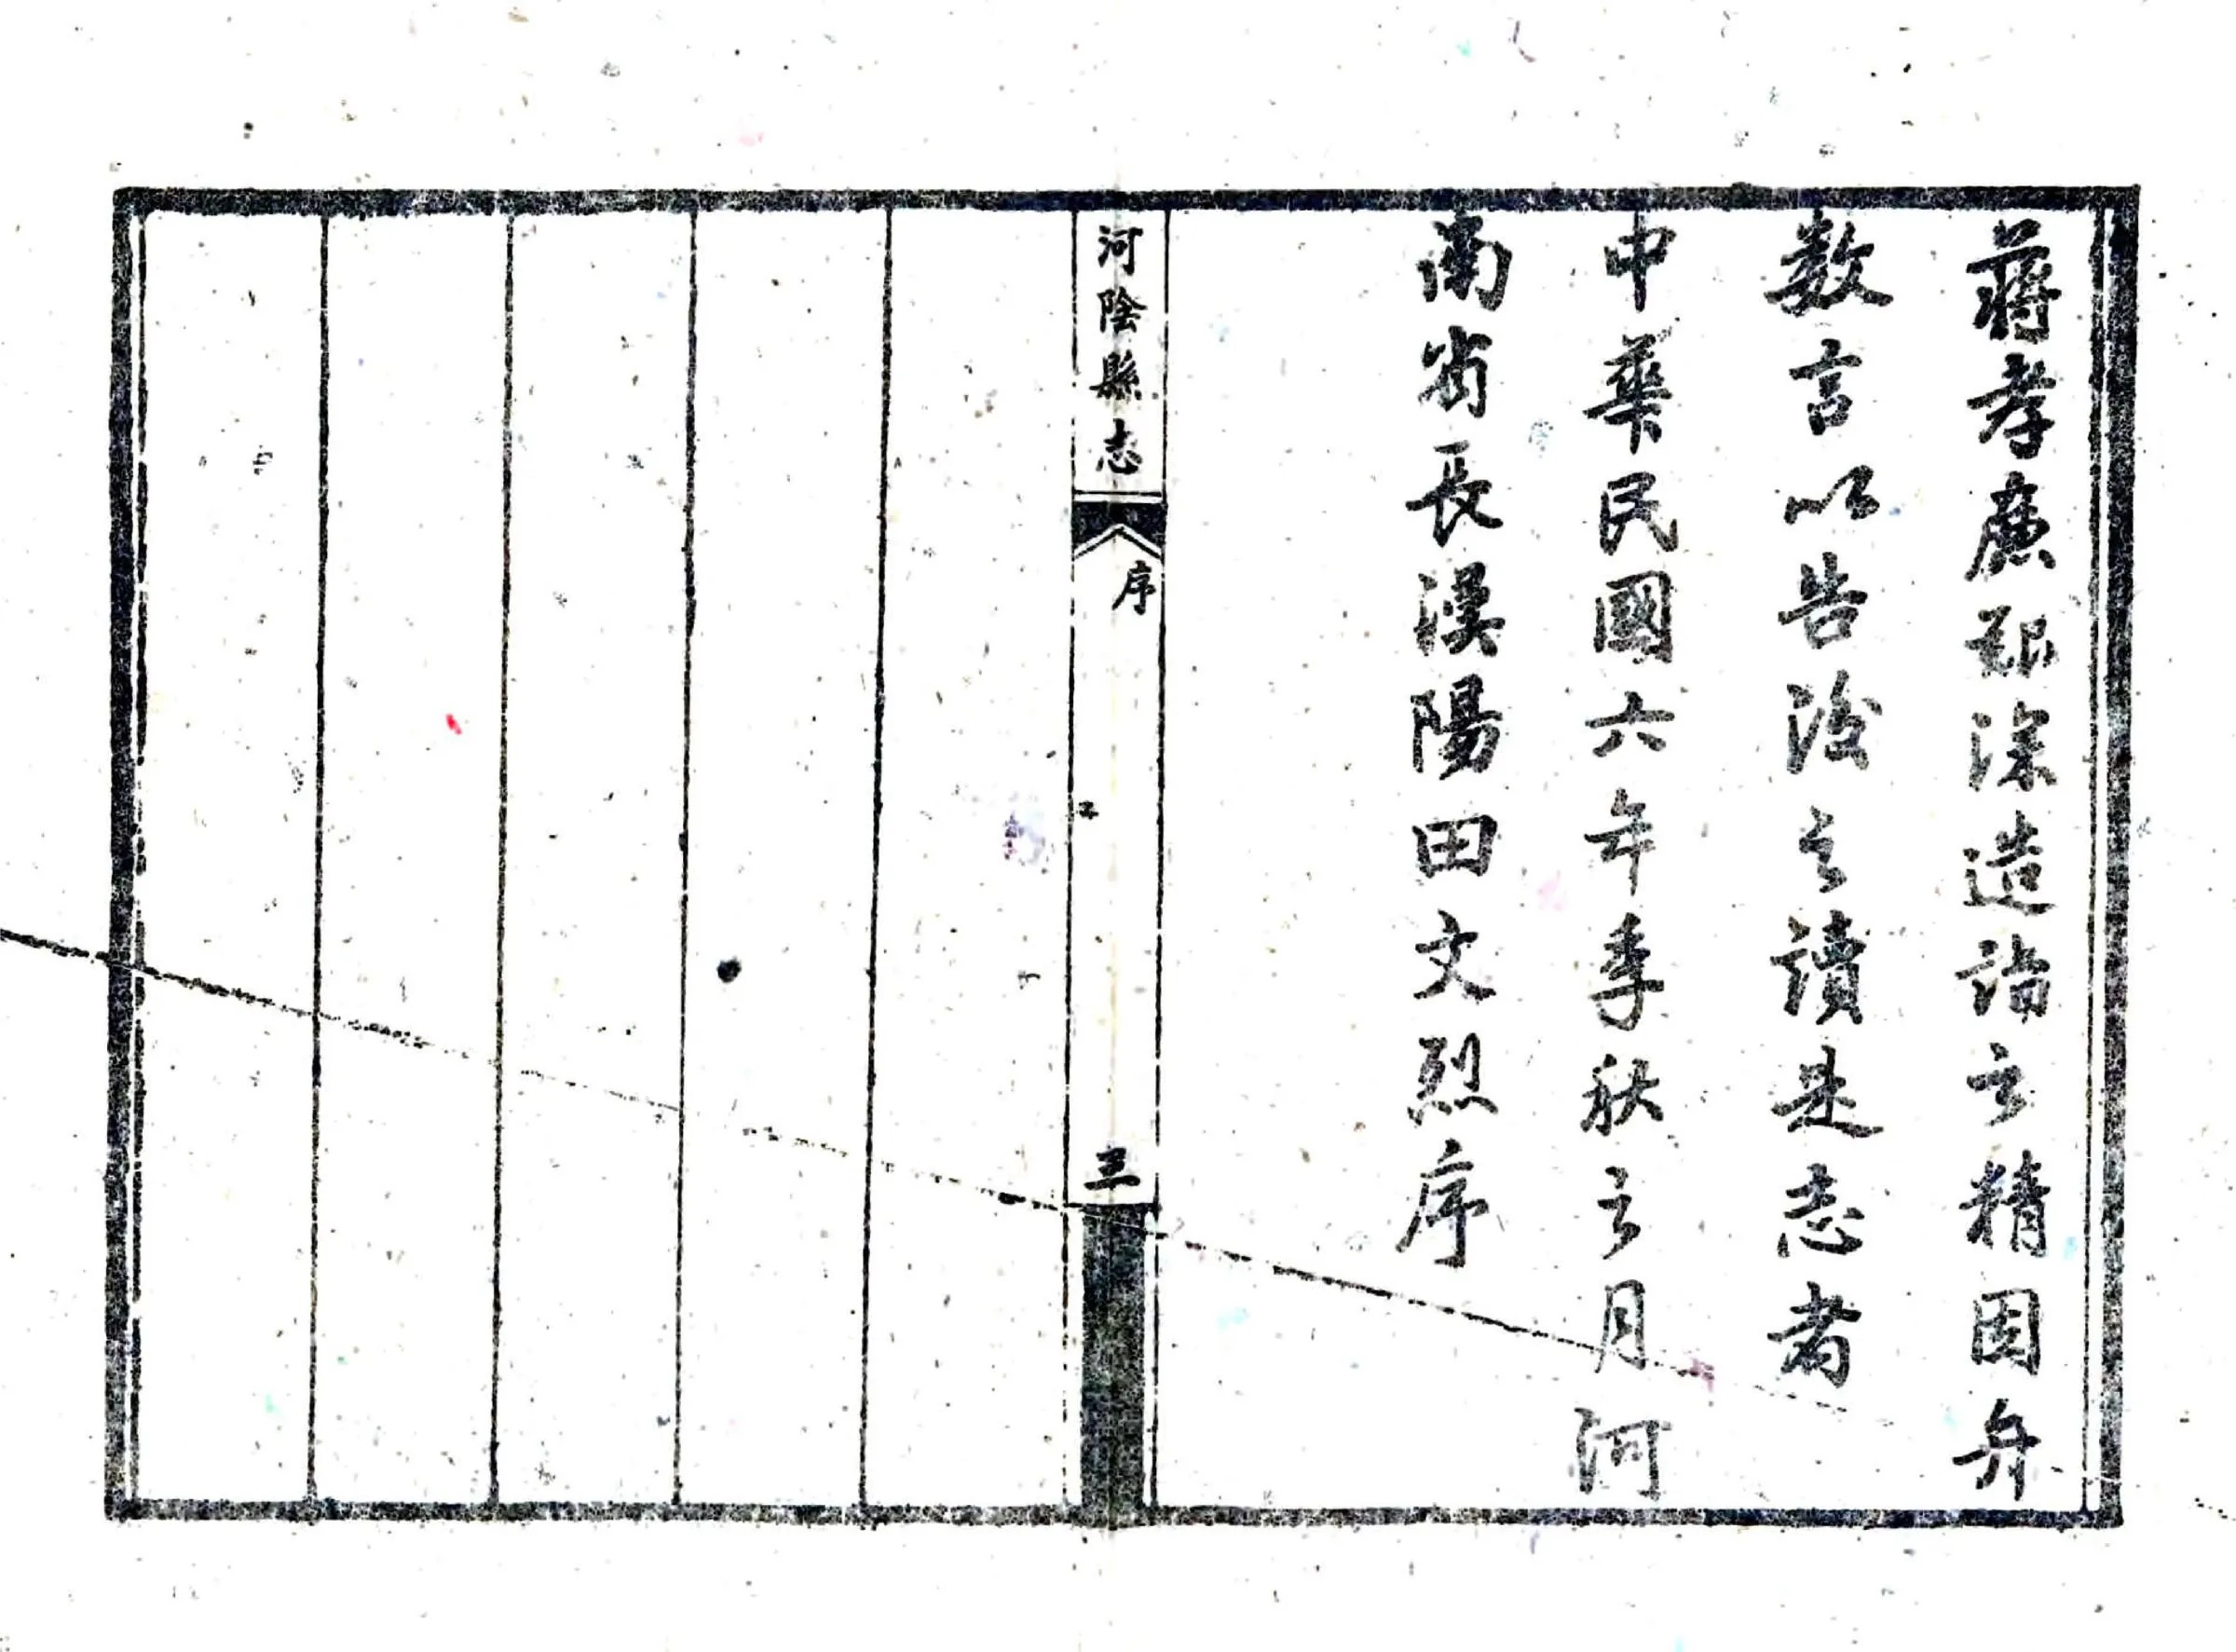 蔣孝廉艱深造詣之精因弁
数言以告後之讀是志者
中華民國六年季秋之月河
南省長漢陽田文烈序
河陰縣志
序
三